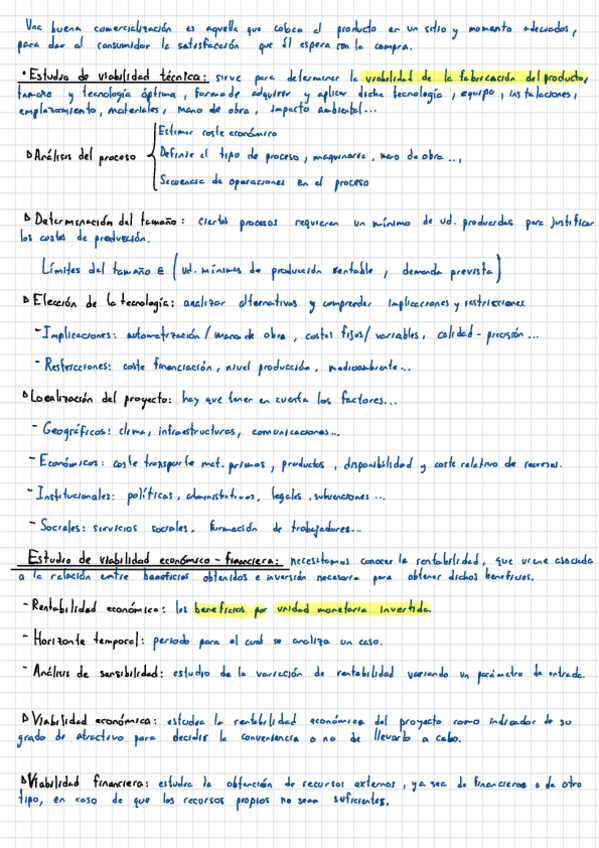 Una buena comercialización es aquella que coloca el producto en un sitio y momento adecuados,
para dar al consumidor la satisfacción que él espera con la compra.
• Estudio de viabilidad técnica: sirve para determinar la viabilidad de la fabricación del producto,
tamaño y tecnología óptima, forma de adquirir y aplicar dicha tecnología, equipo, instalaciones,
emplazamiento, materiales, mano de obra, impacto ambiental...
Estimar coste económico
▷ Análisis del proceso
Definir el tipo de proceso, maquinaria, mano de obra...,
Secuencia de operaciones en el proceso
▷ Determinación del tamaño: ciertos procesos requieren un mínimo de ud. producidas para justificar
los costes de producción.
Límites del tamaño ∈ (ud. mínimas de producción rentable, demanda prevista)
▷ Elección de la tecnología: analizar alternativas y comprender implicaciones y restricciones
- Implicaciones: automatización / mano de obra, costes fijos / variables, calidad - precisión...
- Restricciones: coste financiación, nivel producción, medioambiente...
▷ Localización del proyecto: hay que tener en cuenta los factores...
- Geográficos: clima, infraestructuras, comunicaciones...
- Económicos: coste transporte mat. primas, productos, disponibilidad y coste relativo de recursos.
- Institucionales: políticas, administrativos, legales, subvenciones...
- Sociales: servicios sociales, formación de trabajadores...
Estudio de viabilidad económico - financiera: necesitamos conocer la rentabilidad, que viene asociada
a la relación entre beneficios obtenidos e inversión necesaria para obtener dichos beneficios.
- Rentabilidad económica: los beneficios por unidad monetaria invertida
- Horizonte temporal: periodo para el cual se analiza un caso.
- Análisis de sensibilidad: estudio de la variación de rentabilidad variando un parámetro de entrada.
▷ Viabilidad económica: estudia la rentabilidad económica del proyecto como indicador de su
grado de atractivo para decidir la conveniencia o no de llevarlo a cabo.
▷ Viabilidad financiera: estudia la obtención de recursos externos, ya sea de financieros o de otro
tipo, en caso de que los recursos propios no sean suficientes.